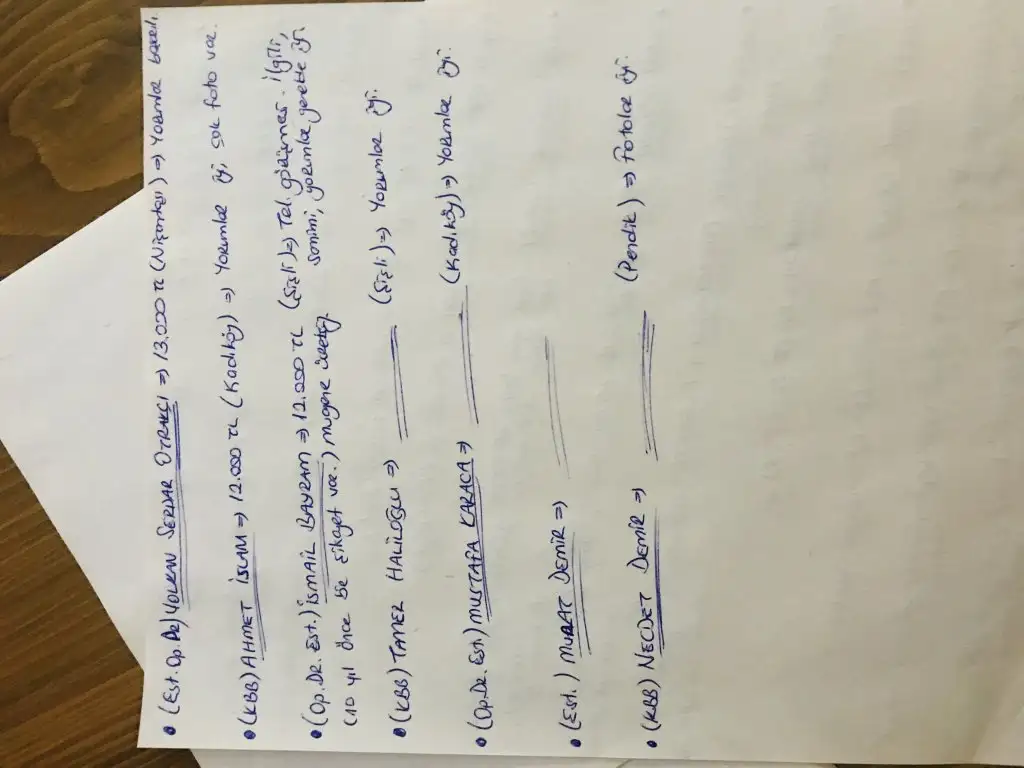 • (Est. Op. Dr) VOLKAN SERDAR OTRAKÇI => 13.000 TL (Nişantaşı) => Yorumlar
• (KBB) AHMET İSLAM => 12.000 TL (Kadıköy) => Yorumlar iyi, çok foto var.
• (Op. Dr. Est.) İSMAİL BAYRAM => 12.000 TL (Şişli) => Tel. görüşmesi. ilgili,
samimi, yorumlar genelde iyi
(10 yıl önce bir şikayet var.) muayene ücretsiz
• (KBB) TANER HALİLOĞLU => (Şişli) => Yorumlar iyi.
• (Op. Dr. Est.) MUSTAFA KARACA => (Kadıköy) => Yorumlar iyi.
• (Est.) MURAT DEMİR =>
• (KBB) NECDET DEMİR => (Pendik) => Fotolar iyi.